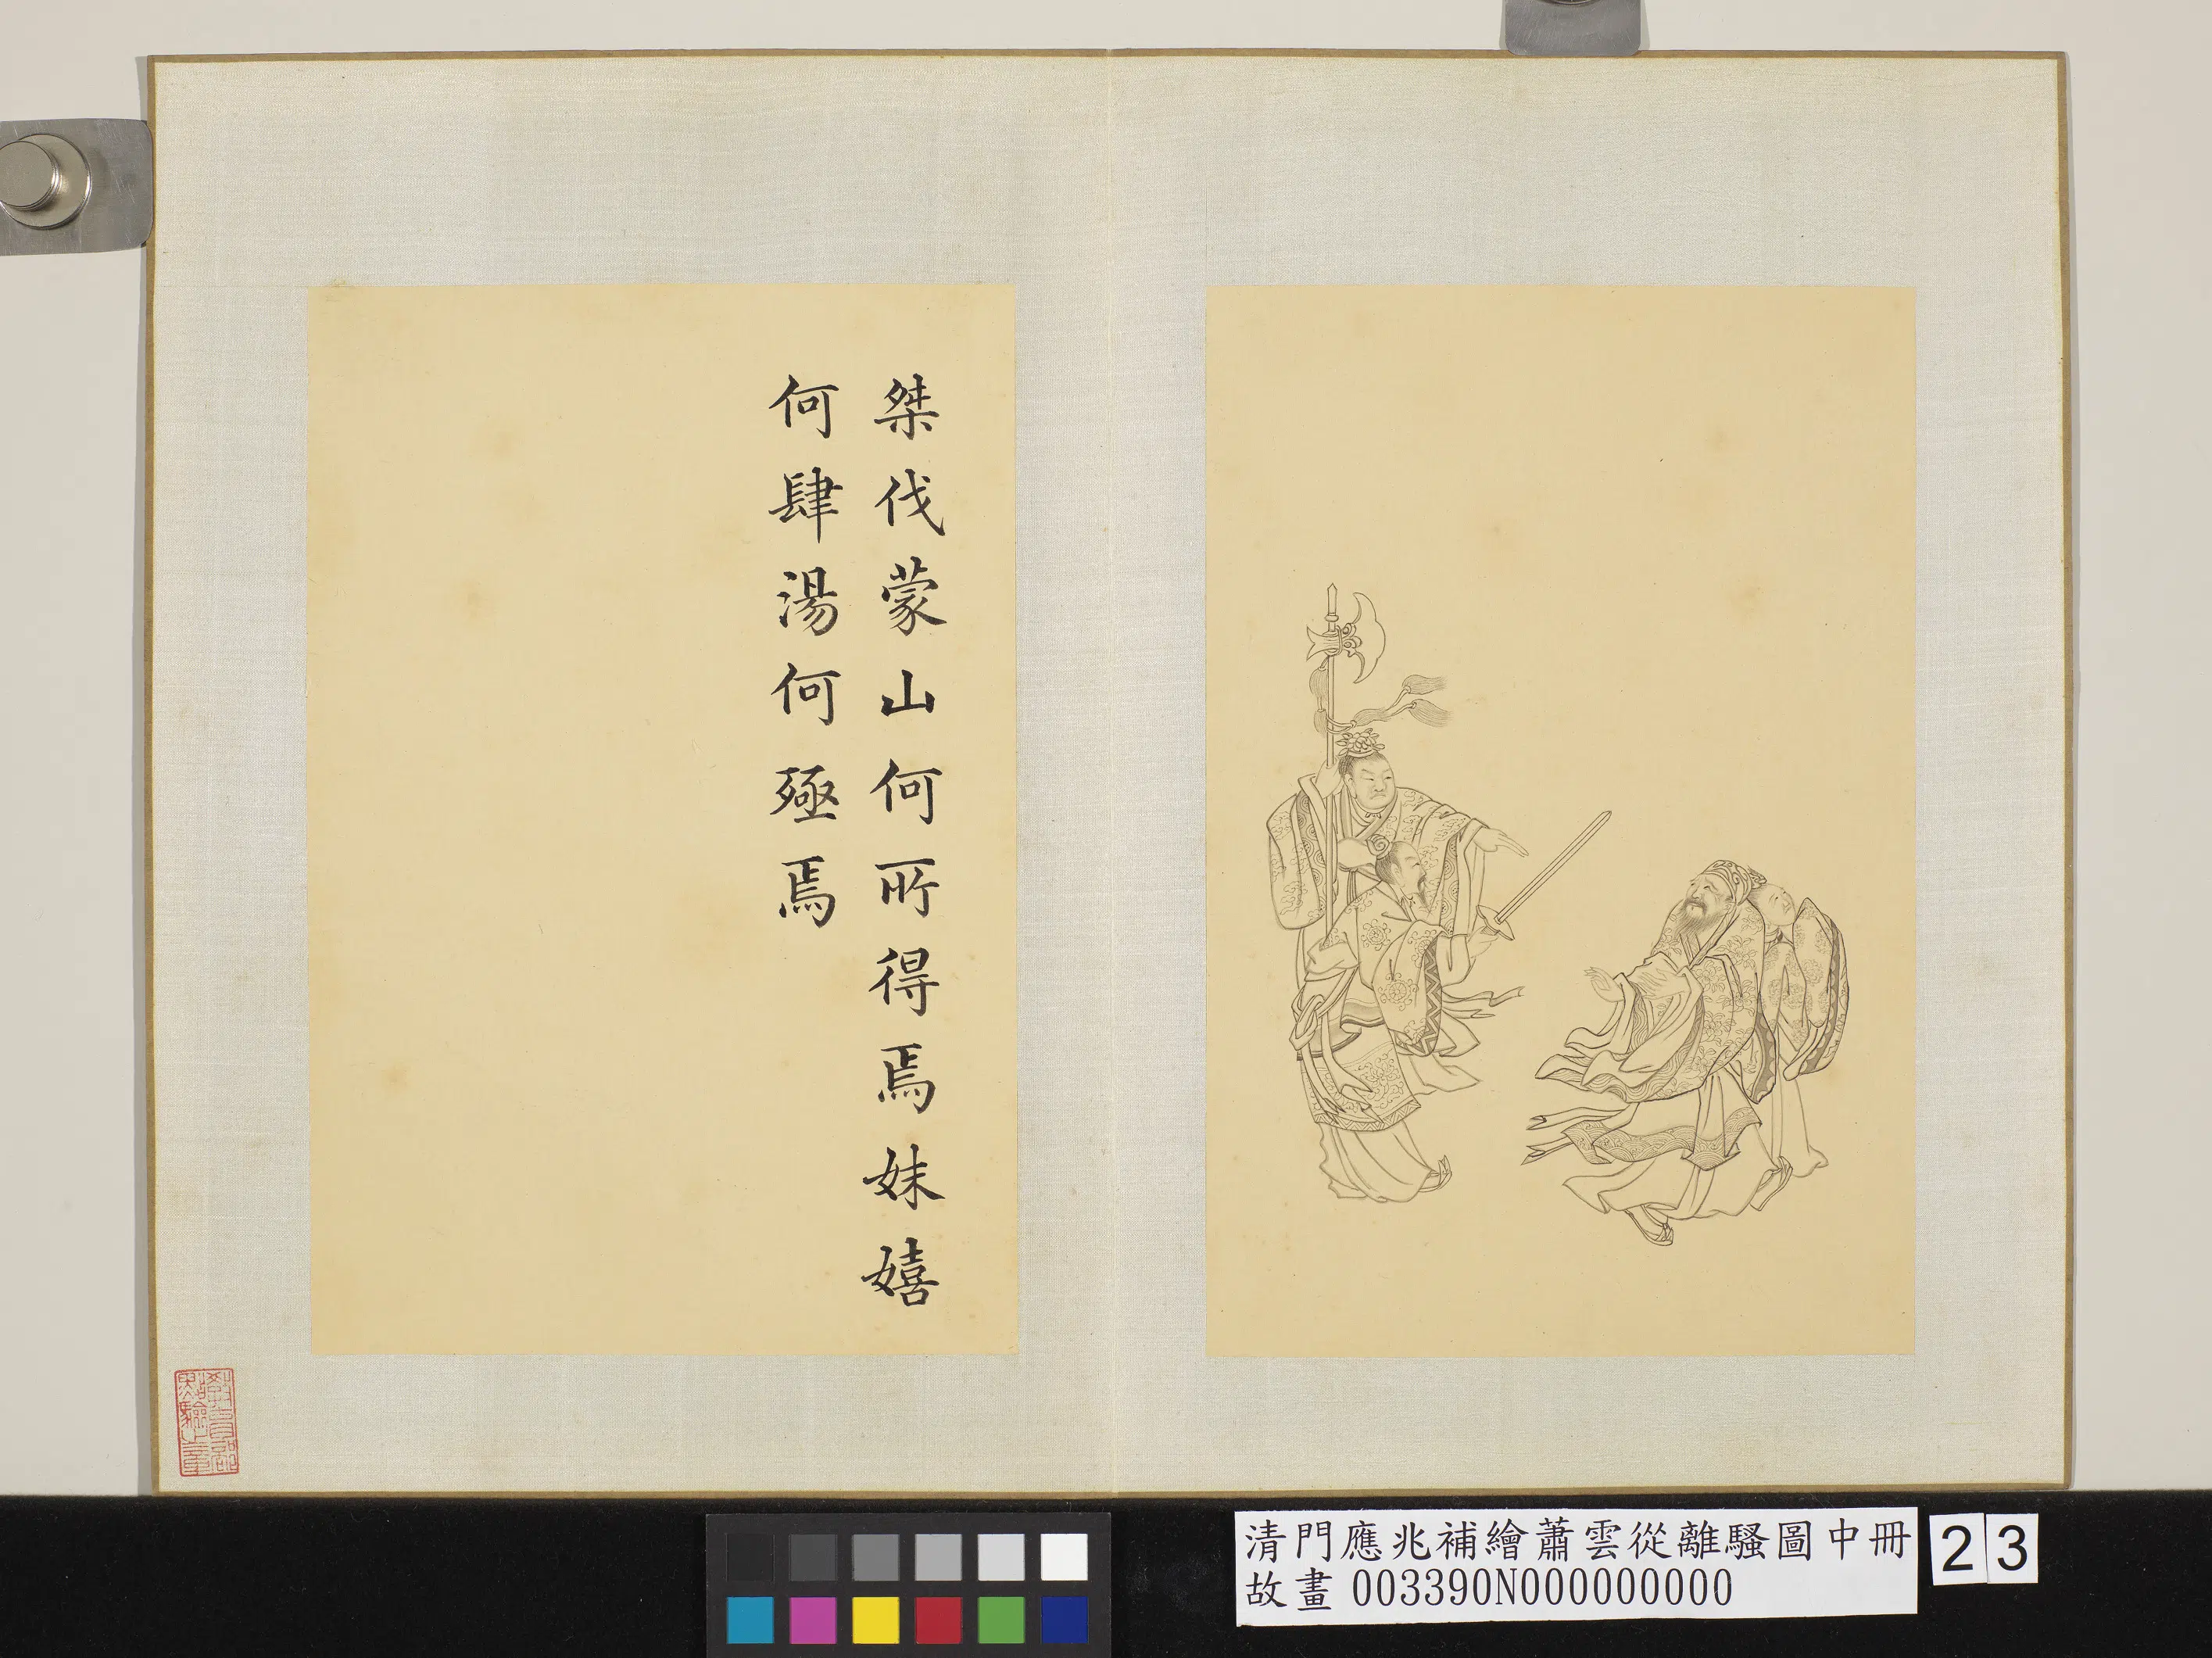 桀伐蒙山何所得焉妺嬉
何肆湯何殛焉
清門應兆補繪蕭雲從離騷圖中冊
故畫 003390N000000000
23